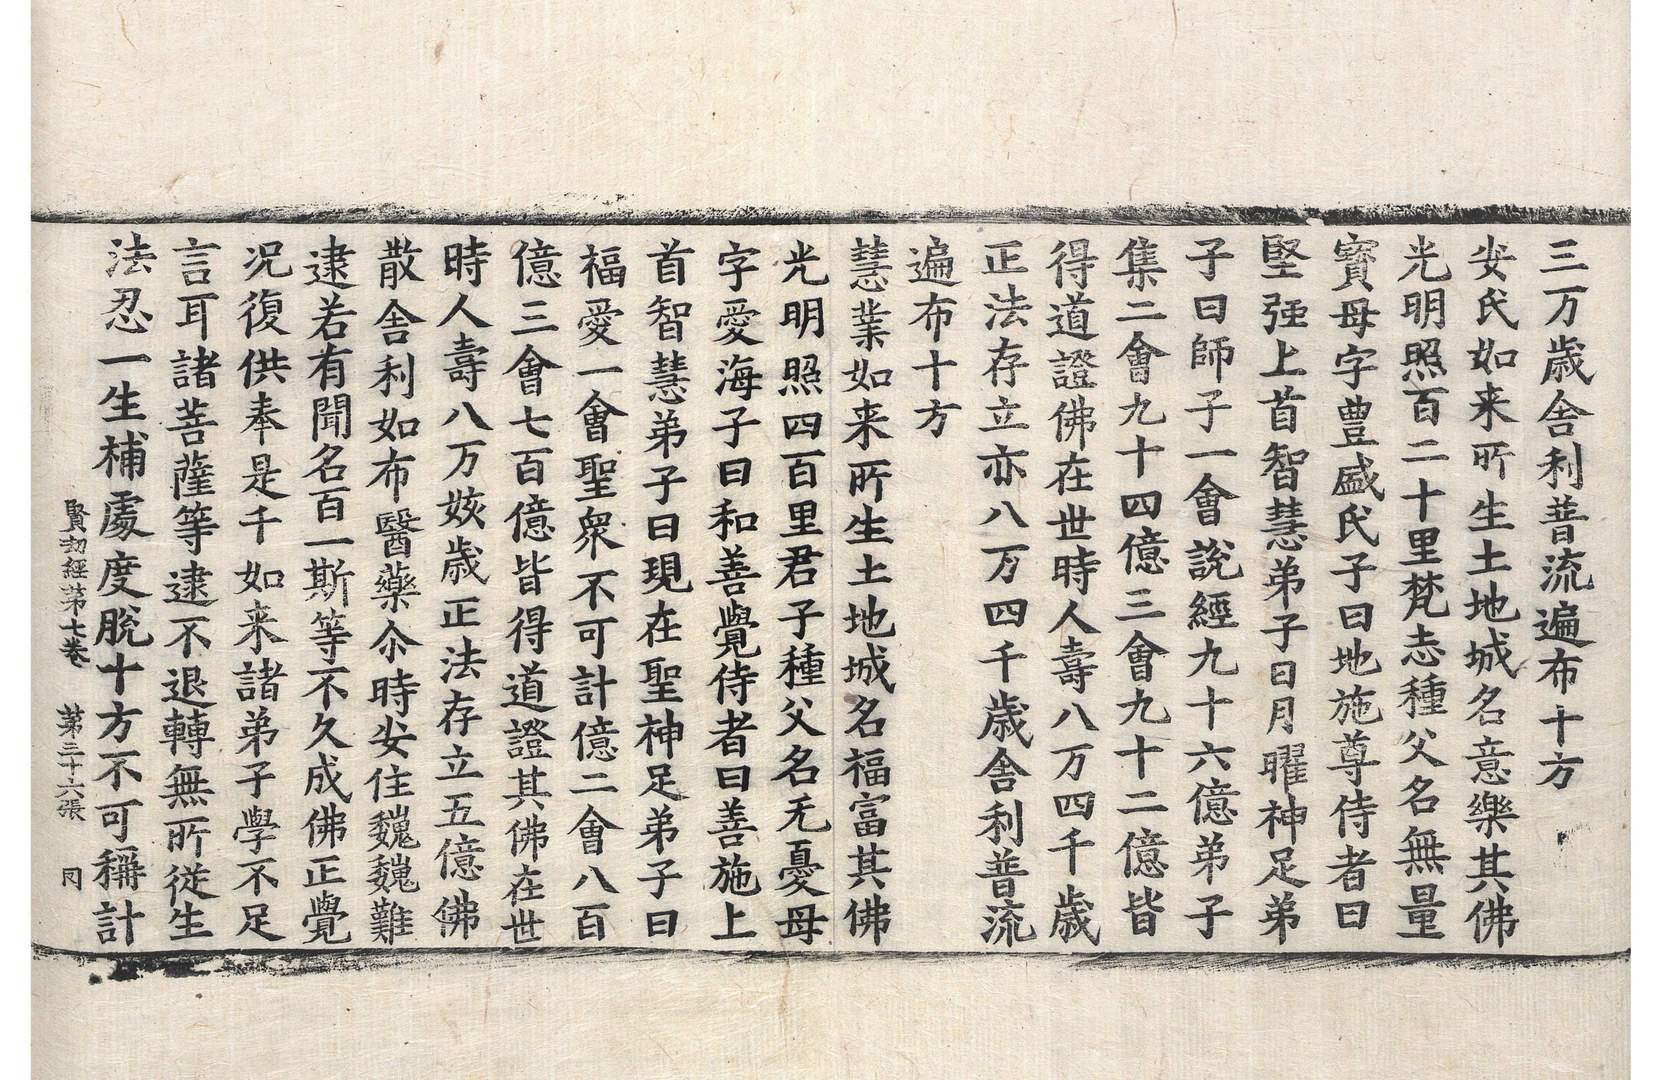 三万歳舍利普流遍布十方
安氏如来所生土地城名意樂其佛
光明照百二十里梵志種父名無量
寳母字豊盛氏子曰地施尊侍者曰
堅强上首智慧弟子曰月曜神足弟
子曰師子一會說經九十六億弟子
集二會九十四億三會九十二億皆
得道證佛在世時人壽八万四千歳
正法存立亦八万四千歳舍利普流
遍布十方
慧業如来所生土地城名福富其佛
光明照四百里君子種父名无憂母
字愛海子曰和善覺侍者曰善施上
首智慧弟子曰現在聖神足弟子曰
福愛一會聖衆不可計億二會八百
億三會七百億皆得道證其佛在世
時人壽八万姟歳正法存立五億佛
散舍利如布醫藥尒時安住巍巍難
逮若有聞名百一斯等不久成佛正覺
况復供奉是千如来諸弟子學不足
言耳諸菩薩等逮不退轉無所從生
法忍一生補處度脫十方不可稱計
賢劫經第七卷 第三十六張 冈